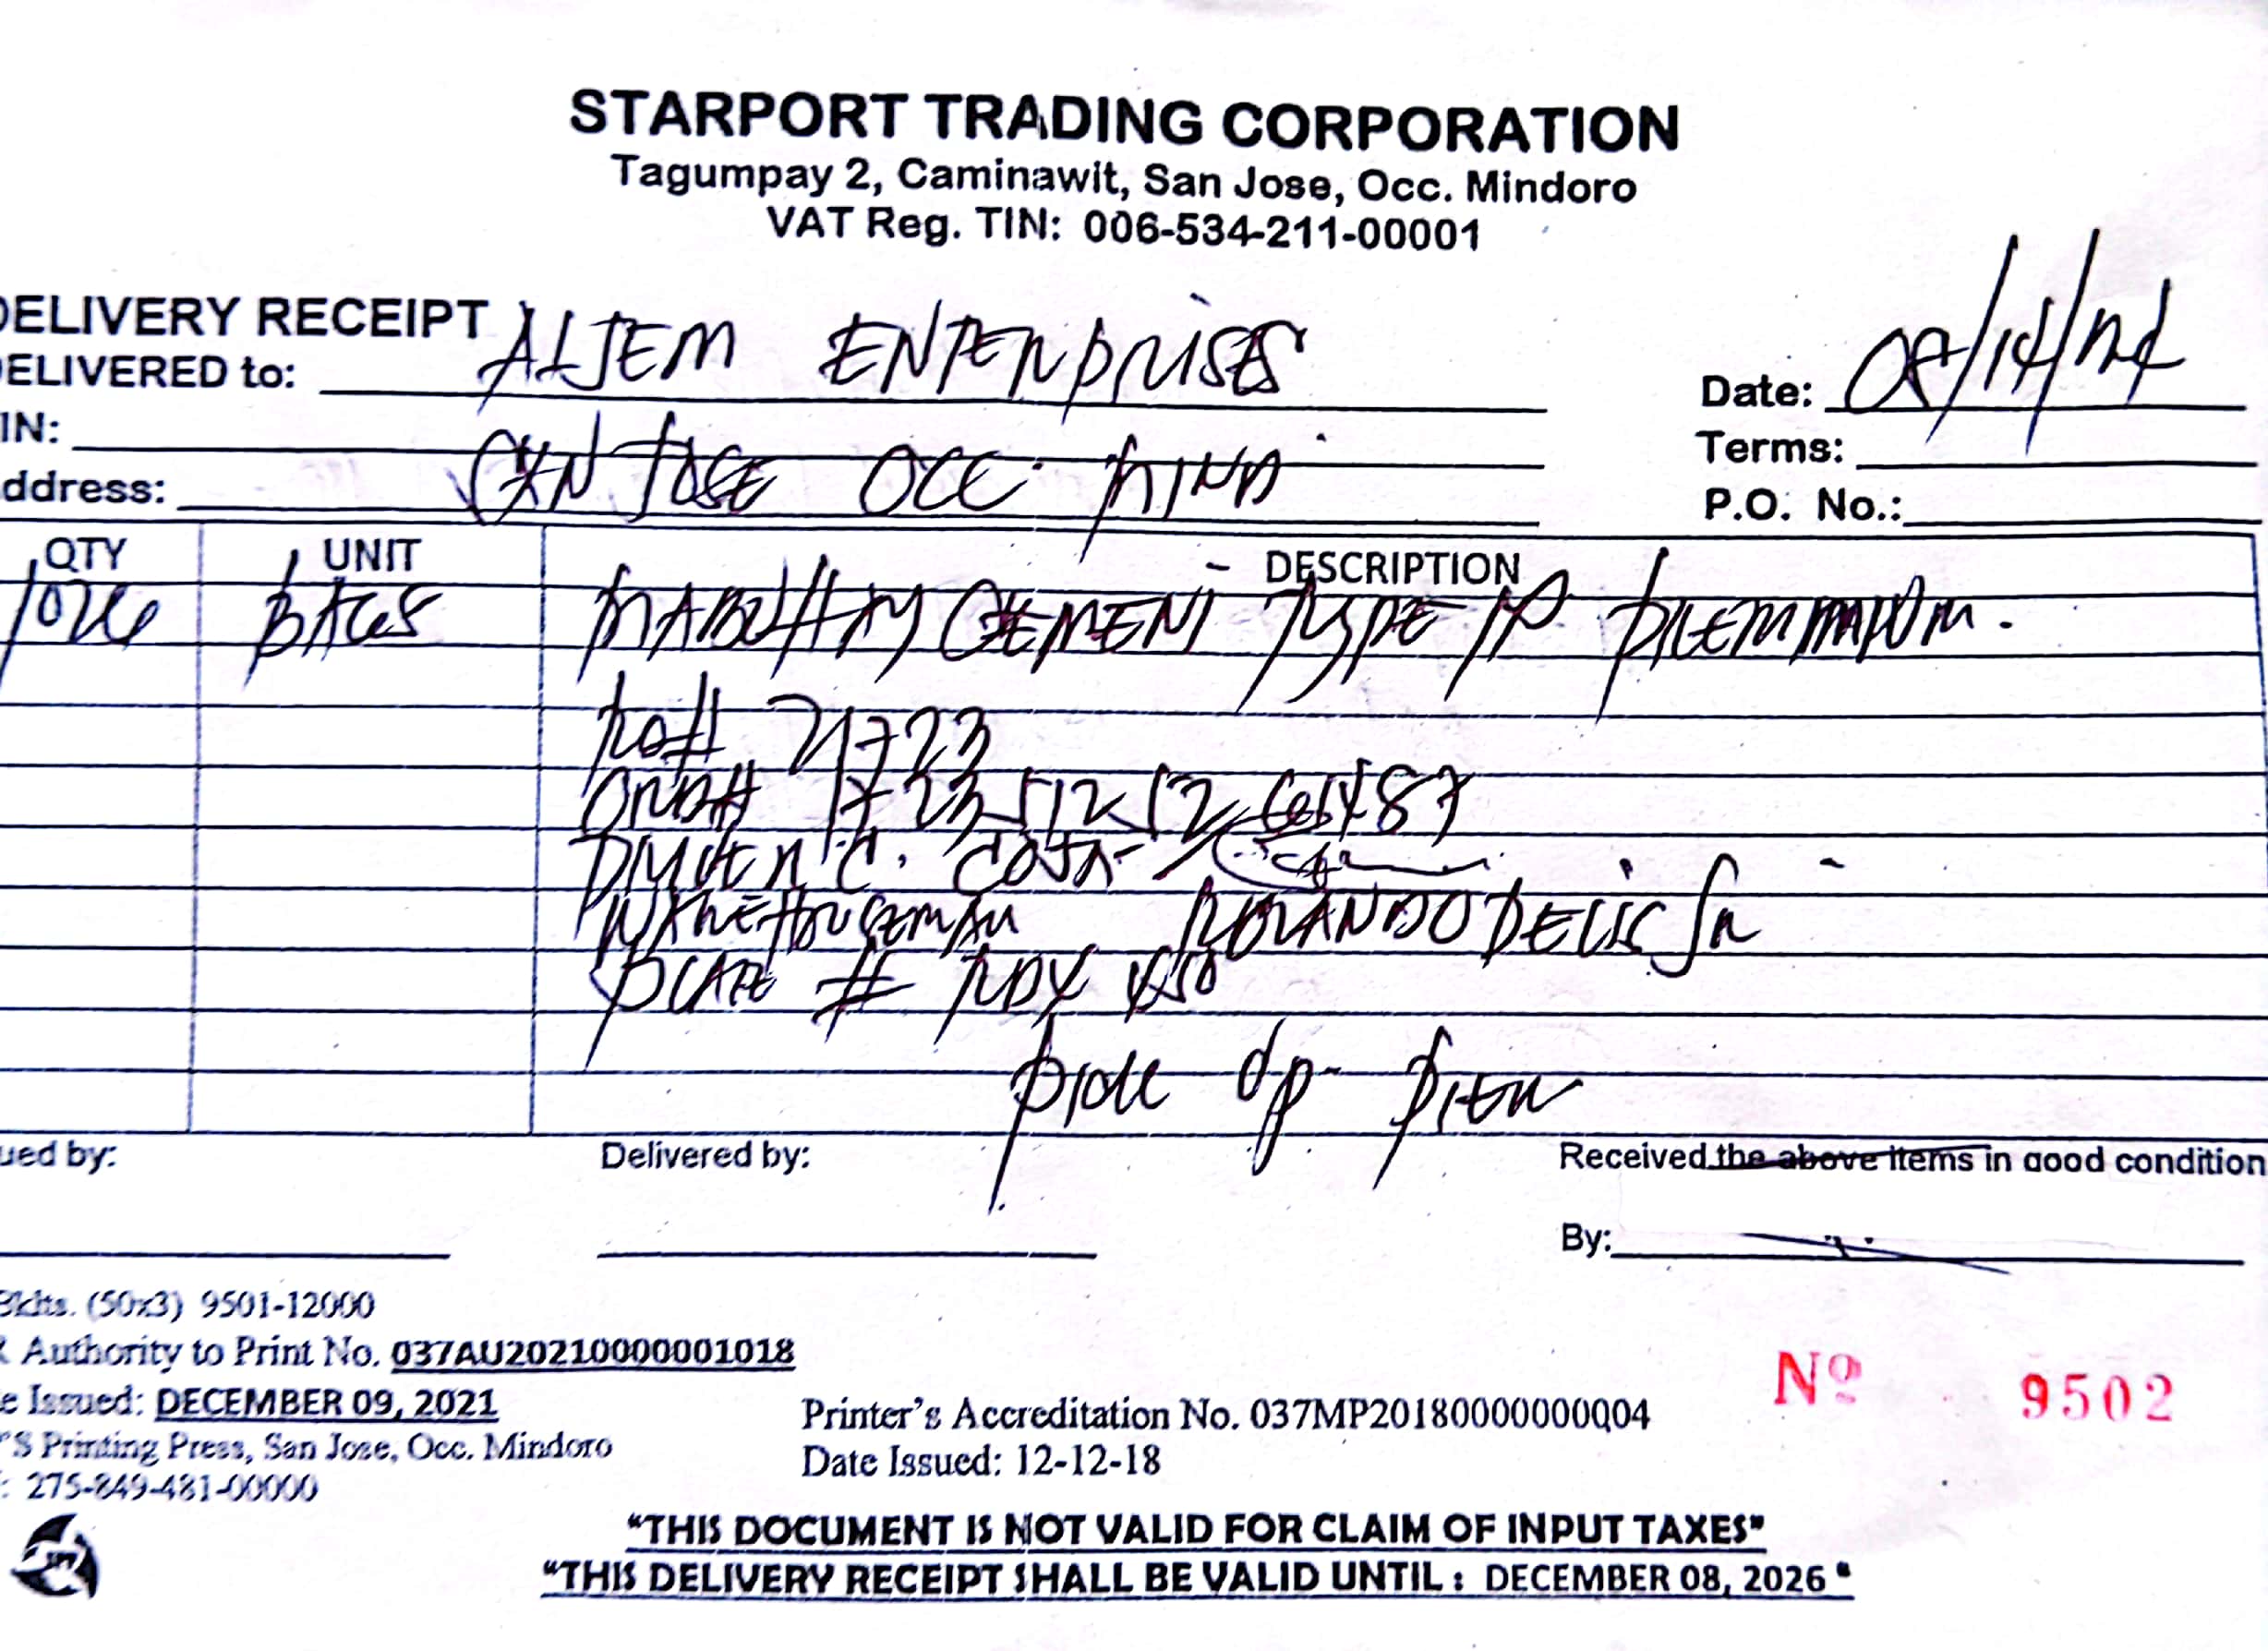 STARPORT TRADING CORPORATION
Tagumpay 2, Caminawit, San Jose, Occ. Mindoro
VAT Reg. TIN: 006-534-211-00001
DELIVERY RECEIPT
ELIVERED to: ALJEM ENTERPRISES Date:
IN: Terms:
ddress: SAN JOSE OCC. P.O. No.:
QTY UNIT DESCRIPTION
BAGS CEMENT TYPE 1P
# 21723
C.
WAREHOUSEMAN ROLANDO
PLATE #
PICK UP PIER
ued by: Delivered by: Received the above items in good condition
By:
Bklts. (50x3) 9501-12000
Authority to Print No. 037AU20210000001018
e Issued: DECEMBER 09, 2021
Printer's Accreditation No. 037MP20180000000004
'S Printing Press, San Jose, Occ. Mindoro
Date Issued: 12-12-18
: 275-849-481-00000
Nº 9502
"THIS DOCUMENT IS NOT VALID FOR CLAIM OF INPUT TAXES"
"THIS DELIVERY RECEIPT SHALL BE VALID UNTIL : DECEMBER 08, 2026 "